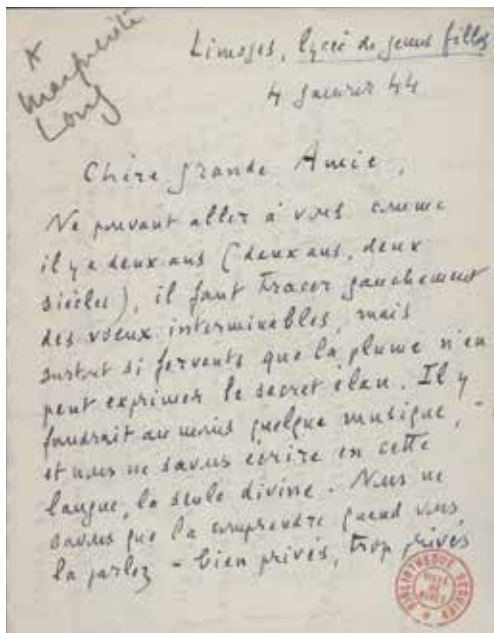 A
Marguerite
Long
Limoges, lycée de jeunes filles
4 janvier 44
Chère grande Amie,
Ne pouvant aller à vous comme
il y a deux ans (deux ans, deux
siècles), il faut tracer gauchement
des vœux interminables, mais
surtout si fervents que la plume n'en
peut exprimer le secret élan. Il y
faudrait au moins quelque musique, -
et nous ne savons écrire en cette
langue, la seule divine. Nous ne
savons que la comprendre quand vous
la parlez - bien privés, trop privés
BIBLIOTHEQUE SEGUIER
VILLE DE NIMES